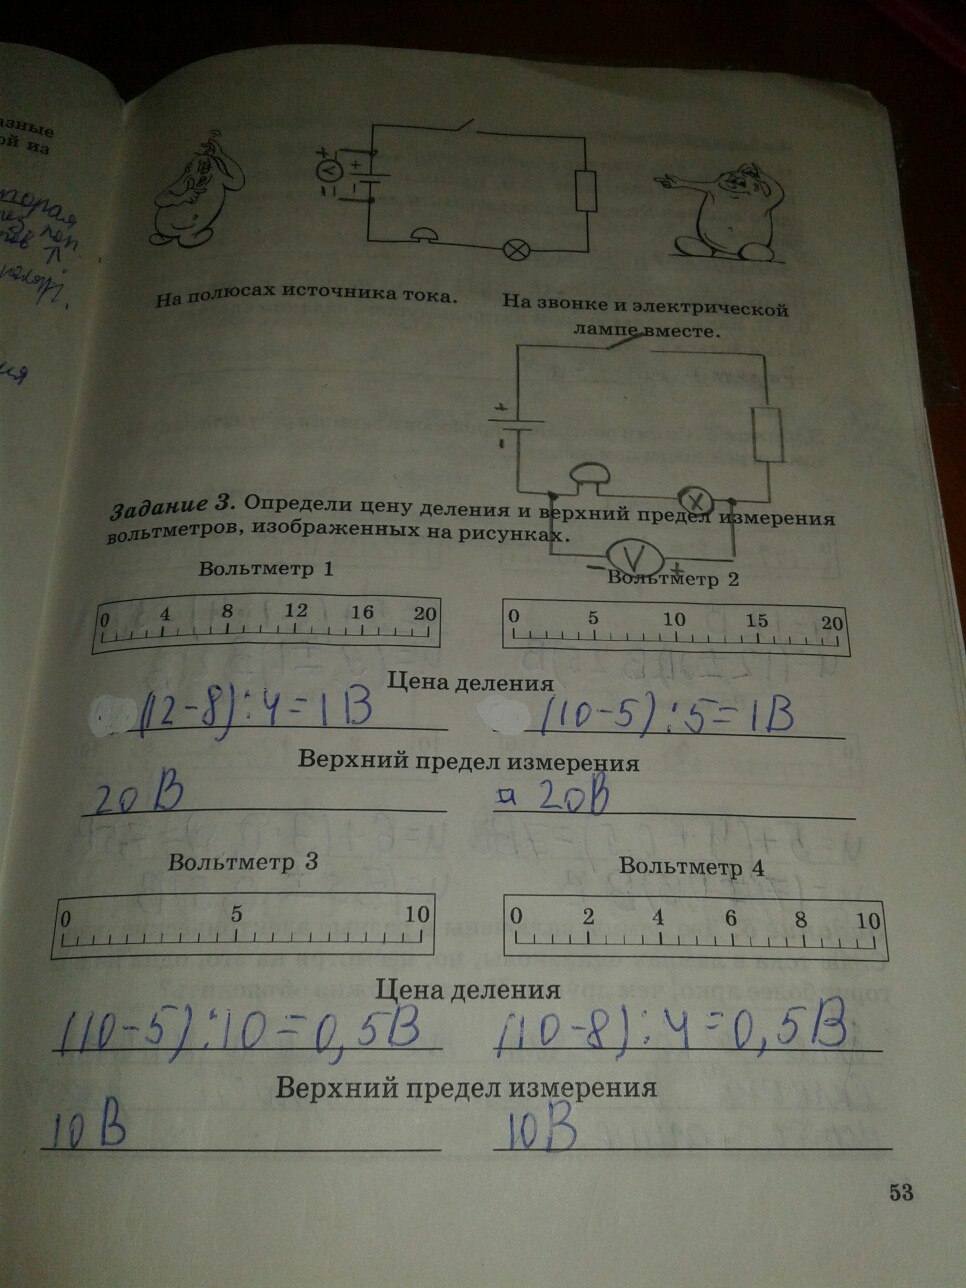 азные
ой из
торая
На полюсах источника тока.
На звонке и электрической
лампе вместе.
+
V
−
+
−
+
-
V
- +
Задание 3. Определи цену деления и верхний предел измерения
вольтметров, изображенных на рисунках.
Вольтметр 1
Вольтметр 2
0 4 8 12 16 20
0 5 10 15 20
Цена деления
(12-8):4=1В
(10-5):5=1В
Верхний предел измерения
20 В
20В
Вольтметр 3
Вольтметр 4
0 5 10
0 2 4 6 8 10
Цена деления
(10-5):10=0,5В
(10-8):4=0,5В
Верхний предел измерения
10 В
10В
53